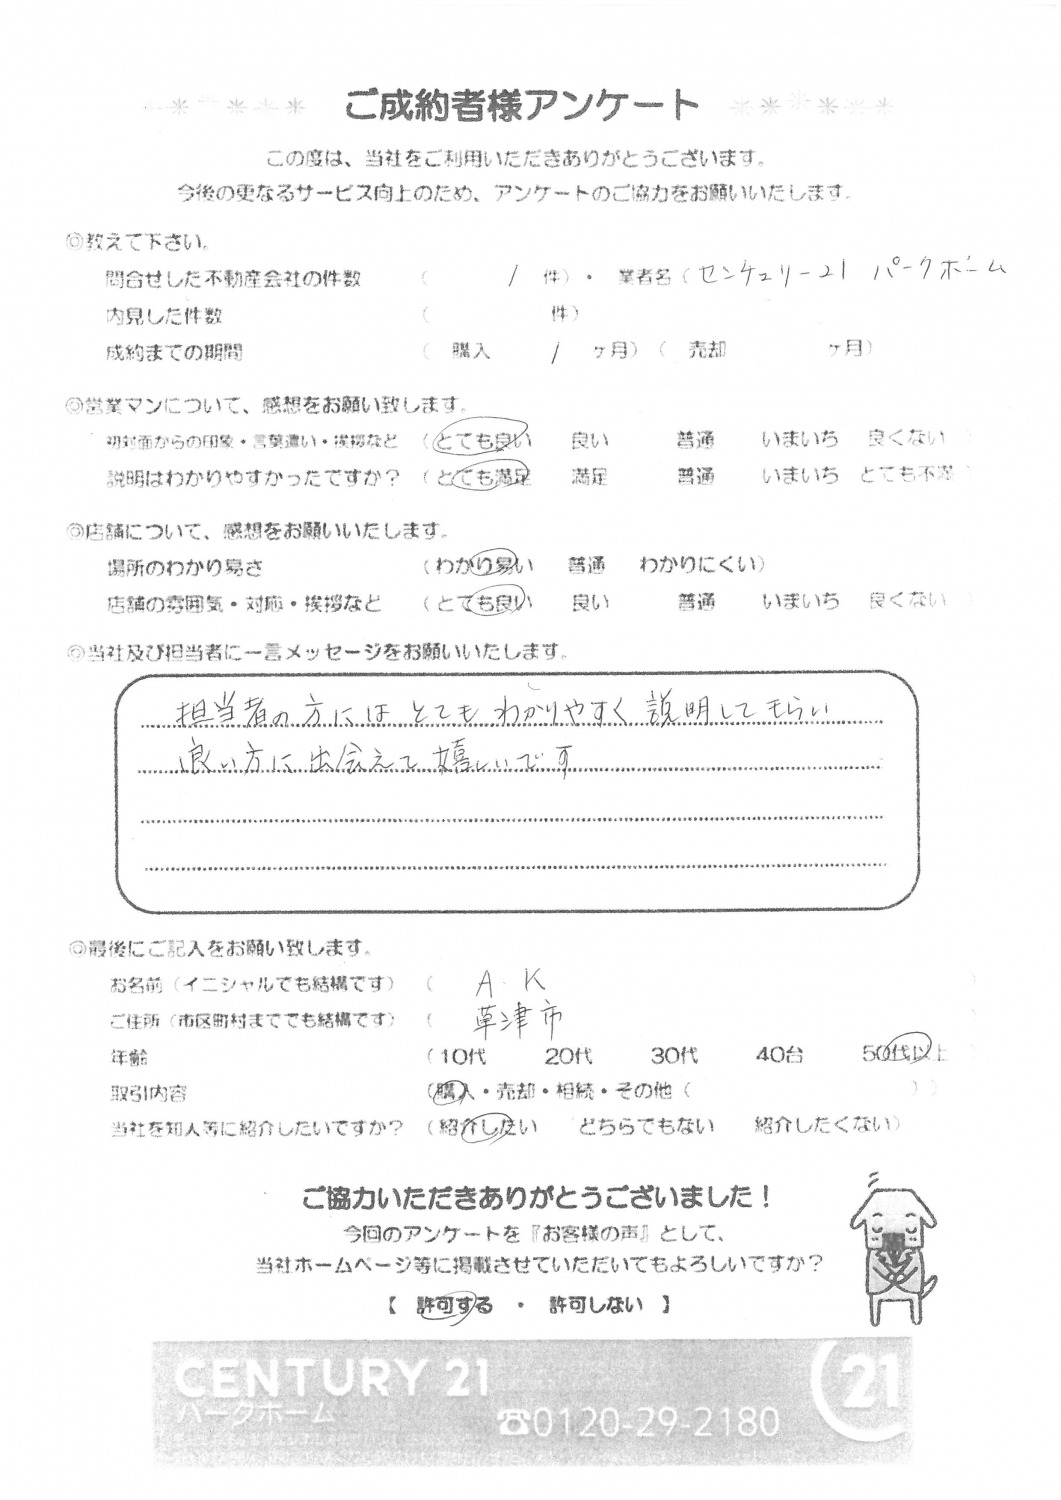 ご成約者様アンケート
この度は、当社をご利用いただきありがとうございます。
今後の更なるサービス向上のため、アンケートのご協力をお願いいたします。
◎教えて下さい。
問合せした不動産会社の件数 ( 1 件)・ 業者名 ( センチュリー21 パークホーム
内見した件数 ( 件)
成約までの期間 ( 購入 1 ヶ月) ( 売却 ヶ月)
◎営業マンについて、感想をお願い致します。
初対面からの印象・言葉遣い・挨拶など (とても良い 良い 普通 いまいち 良くない )
説明はわかりやすかったですか? (とても満足 満足 普通 いまいち とても不満 )
◎店舗について、感想をお願いいたします。
場所のわかり易さ (わかり易い 普通 わかりにくい)
店舗の雰囲気・対応・挨拶など (とても良い 良い 普通 いまいち 良くない )
◎当社及び担当者に一言メッセージをお願いいたします。
担当者の方にはとてもわかりやすく説明してもらい
良い方に出会えて嬉しいです
◎最後にご記入をお願い致します。
お名前(イニシャルでも結構です) ( A・K )
ご住所(市区町村まででも結構です) ( 草津市
年齢 (10代 20代 30代 40台 50代以上
取引内容 (購入・売却・相続・その他 ( ) )
当社を知人等に紹介したいですか? (紹介したい どちらでもない 紹介したくない)
ご協力いただきありがとうございました!
今回のアンケートを『お客様の声』として、
当社ホームページ等に掲載させていただいてもよろしいですか?
【 許可する ・ 許可しない 】
CENTURY 21
パークホーム
☎0120-29-2180
21